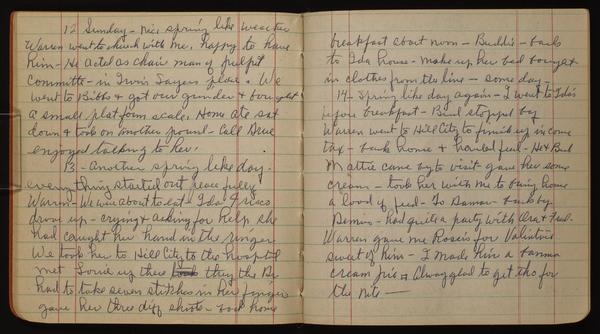 12 Sunday - nice spring like weather
Warren went to church with me. happy to have
him - He acted as chair man of pulpit
committee - in Irvin Sayers place. We
went to Bibbs & got our grinder & bought
a small platform scale. Home ate sat
down & took on another pound - Call Drue
enjoyed talking to her.
13 - Another spring like day -
everything started out peacefully
Warren - We were about to eat - Ida
drove up - crying & asking for help she
had caught her hand in the ringer
We took her to Hill City to the hospital
met up there they the Dr
had to take seven stitches in her finger
gave her three diff shots - took home
breakfast about noon - - back
to Ida house - make up her bed bought
in clothes from the line - some day -
14 - Spring like day again - I went to Ida's
before breakfast - stopped by
Warren went to Hill City to finish up income
tax - back home & hauled feed - He &
Mattie came by to visit gave her some
cream - took her with me to bring home
a load of feed - To Damar - back by
- had quite a party with & Fred.
Warren gave me Roses for Valintine
sweet of him - I made him a banna
cream pie & Always glad to get tho for
the nite -